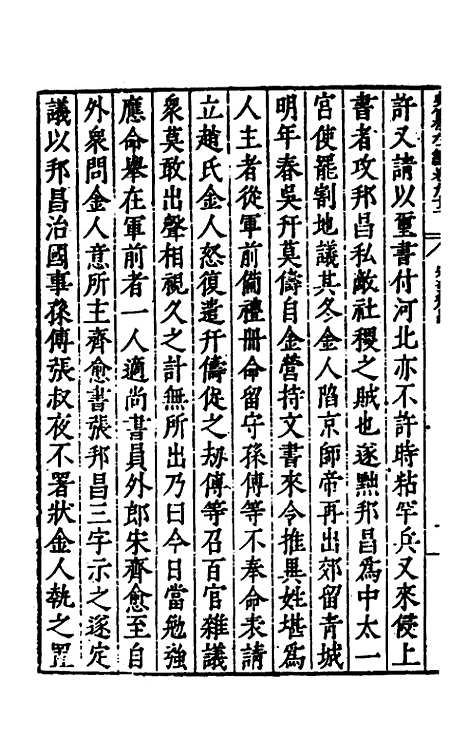 許又請以璽書付河北亦不許時粘罕兵又來侵上
書者攻邦昌私敵社稷之賊也遂黜邦昌爲中太一
宮使罷割地議其冬金人陷京師帝再出郊留青城
明年春吳幵莫儔自金營持文書來令推異姓堪爲
人主者從軍前備禮冊命留守孫傅等不奉命表請
立趙氏金人怒復遣幵儔促之劫傅等召百官雜議
衆莫敢出聲相視久之計無所出乃曰今日當勉強
應命舉在軍前者一人適尚書員外郎宋齊愈至自
外衆問金人意所主齊愈書張邦昌三字示之遂定
議以邦昌治國事孫傅張叔夜不署狀金人執之置